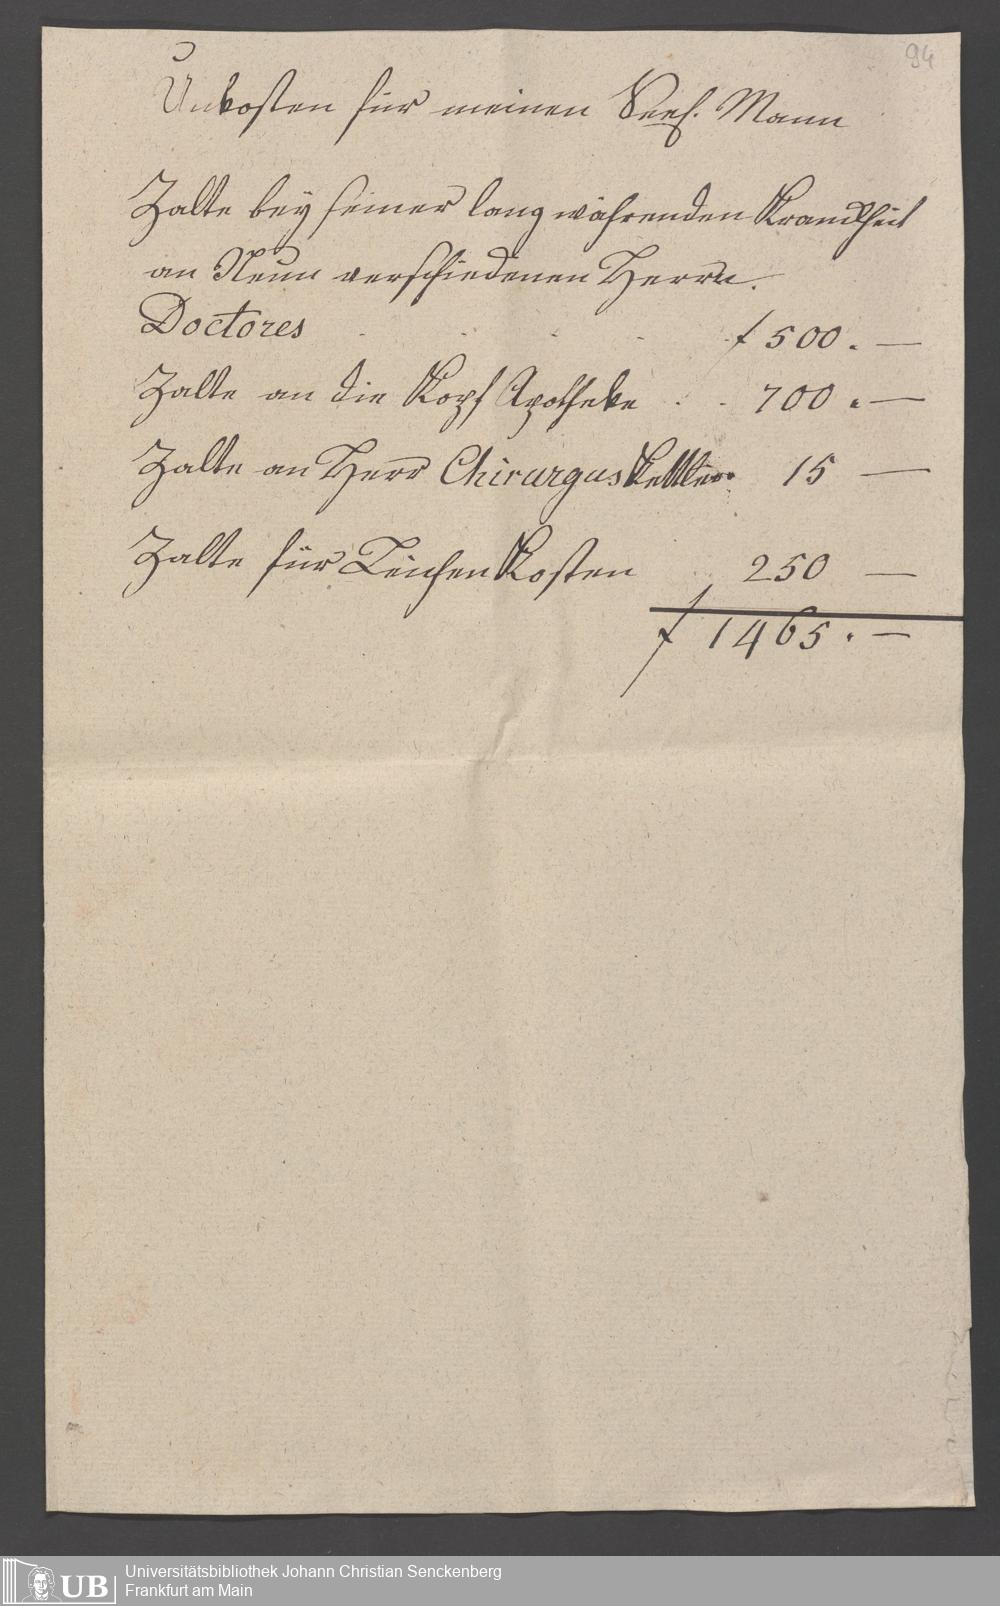 94
Unkosten für meinen Seel. Mann
Zalte bey seiner lang währenden Kranckheit
an Neun verschiedenen Herrn.
Doctores . . . . f 500. —
Zalte an die Kopf Apotheke . . 700. —
Zalte an Herr Chirurgus 15 —
Zalte für Leichen Kosten 250 —
f 1465. —
UB Universitätsbibliothek Johann Christian Senckenberg
Frankfurt am Main